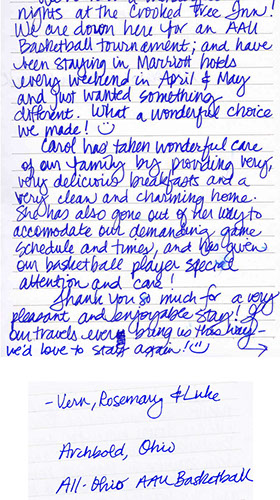 nights at the Crooked Tree Inn!
We are down here for an AAU
Basketball tournament; and have
been staying in Marriott hotels
every weekend in April & May
and just wanted something
different. What a wonderful choice
we made! ☺
Carol has taken wonderful care
of our family by providing very,
very delicious breakfasts and a
very clean and charming home.
She has also gone out of her way to
accomodate our demanding game
schedule and times, and has given
our basketball player special
attention and care!
Thank you so much for a very
pleasant and enjoyable stay! If
our travels ever bring us this way -
we'd love to stay again! ☺ →
- Vern, Rosemary & Luke
Archbold, Ohio
All-Ohio AAU Basketball